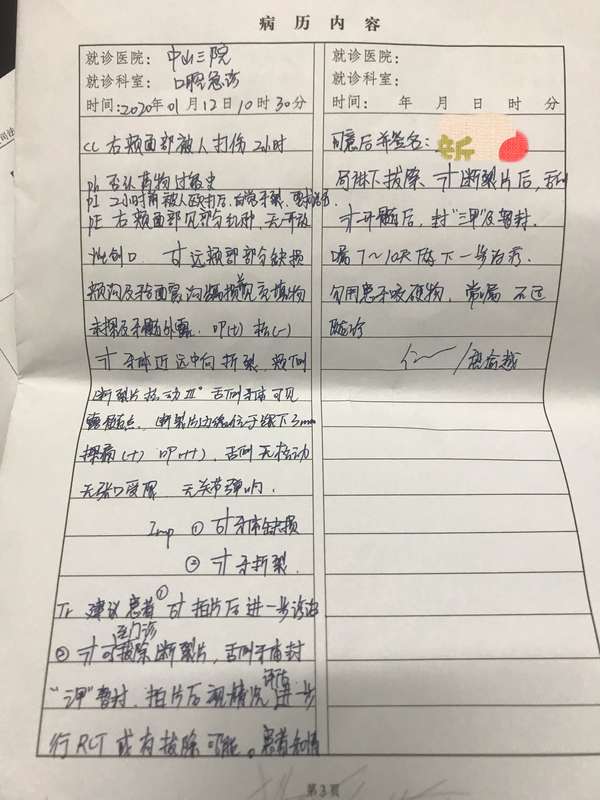 病历内容
就诊医院：中山三院
就诊科室：口腔急诊
时间：2020年01月12日10时30分
CC 右颊面部被人打伤2小时
PH 否认药物过敏史
PI 2小时前被人殴打后，自觉牙裂，
PE 右颊面部见部分红肿，无开放
性创口，远颊部部分缺损
颊沟及𬌗面窝沟见充填物
未探及牙髓外露，叩(±) 松(-)
牙体近远中向折裂，颊侧
断裂片松动Ⅲ° 舌侧牙体可见
露髓点，断裂片边缘位于龈下3mm
探痛(+) 叩(++)，舌侧无松动
无张口受限，无关节弹响。
Imp ① 牙体缺损
② 牙折裂
Tx 建议患者① 拍片后进一步诊治
至门诊
② 可拔除断裂片，舌侧牙体封
"三甲"暂封，拍片后视情况评估进一步
行RCT或有拔除可能。患者知情
就诊医院：
就诊科室：
时间： 年 月 日 时 分
同意后并签名：
局麻下拔除断裂片后，舌侧
开髓后，封"三甲"及暂封。
嘱7～10天后下一步治疗。
勿用患牙咬硬物，常嘱 不适
随诊
第3页